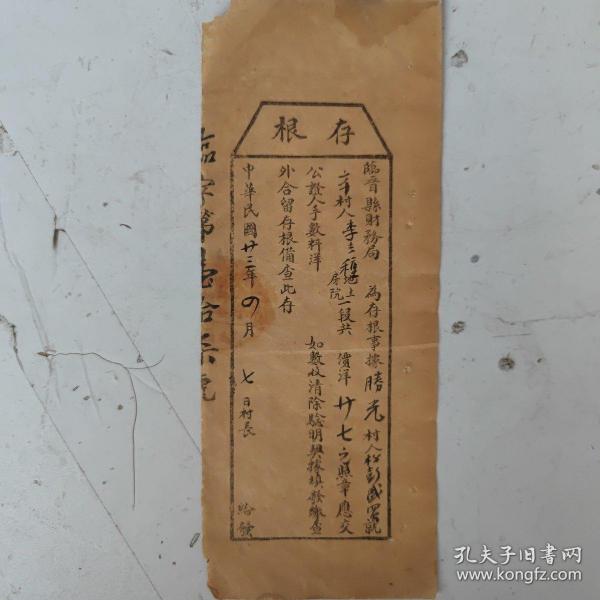 存根
臨晉縣財務局 為存根事據勝光村人
村人李三種地土房院一段共價洋廿七元照章應交
公證人手數料洋 如數收清除騐明契據填發繳查
外合留存根備查此存
中華民國廿三年四月七日村長 給發
字第
號
孔夫子旧书网
www.kongfz.com